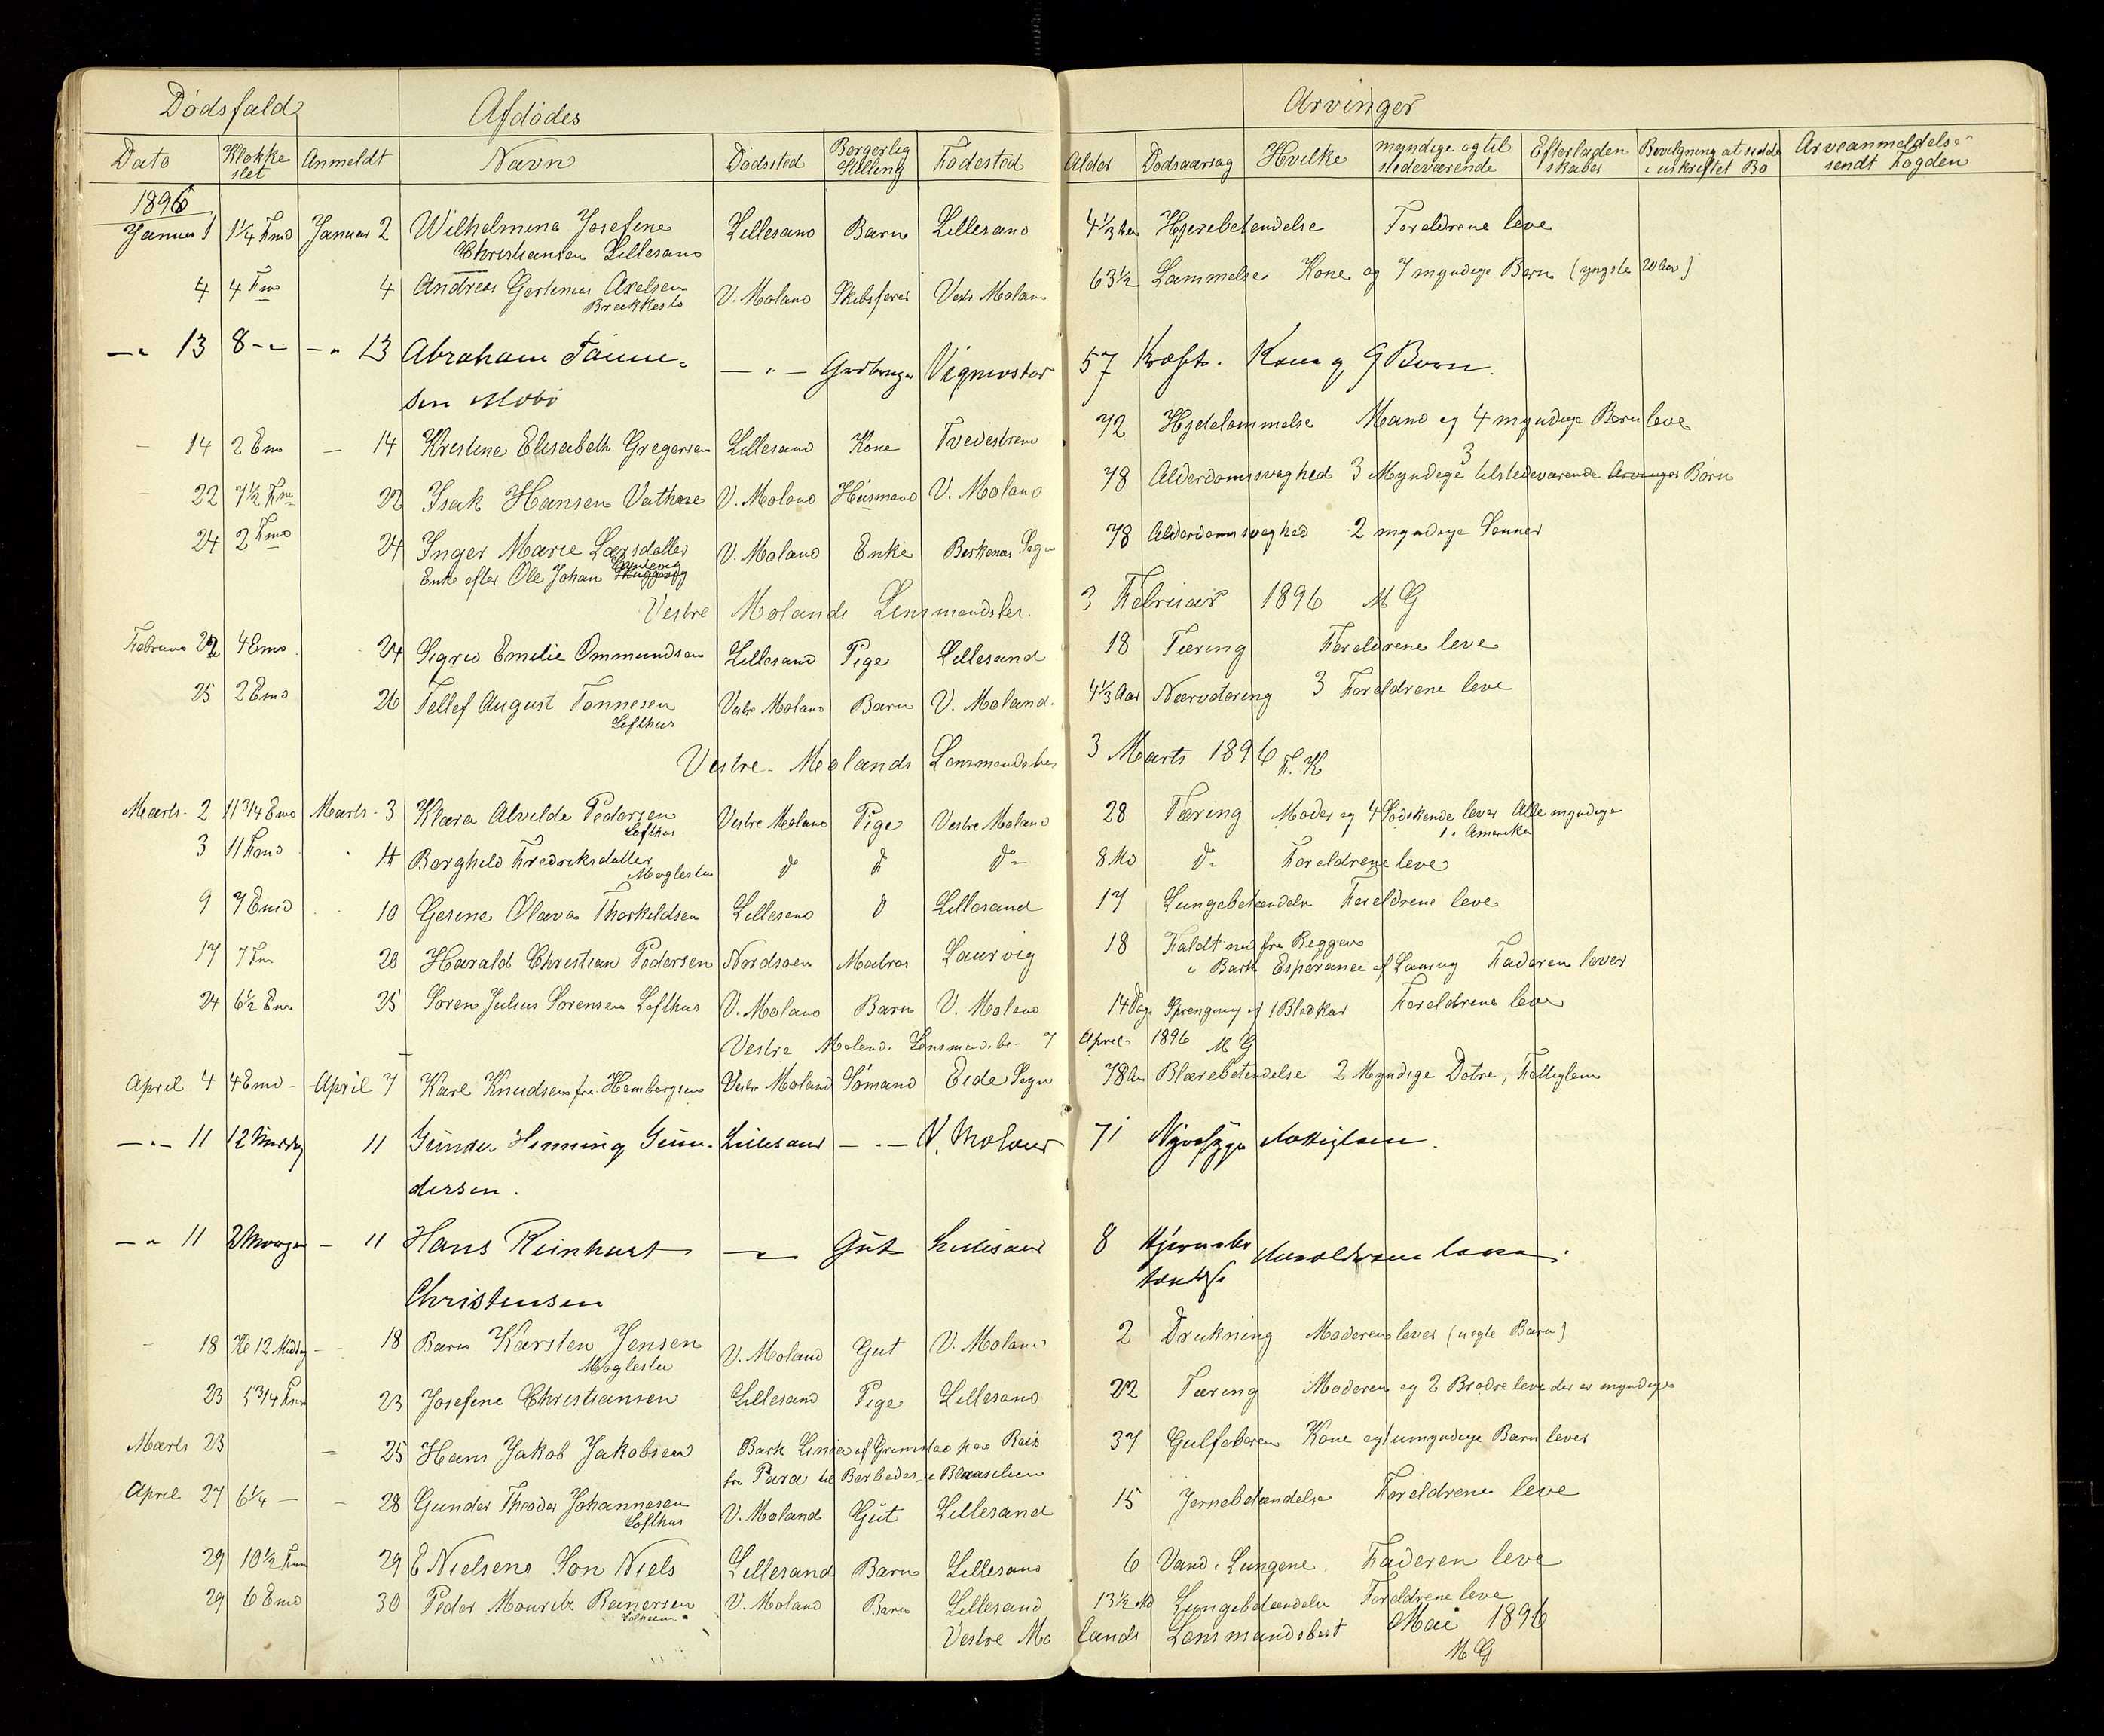 Dødsfald Afdødes Arvinger
Dato Klokkeslet Anmeldt Navn Dødssted Borgerlig Stilling Fødested Alder Dødsaarsag Hvilke myndige og til stedeværende Efterladenskaber Bevilgning at sidde i uskiftet Bo Arveanmeldelse sendt Fogden
1896
Januar 1 1¼ Fmd Januar 2 Wilhelmine Josefine Lillesand Barn Lillesand 4⅓ Hjernebetendelse Foreldrene leve
Christiansen Lillesand
4 4 Fm 4 Andreas Axelsen V. Moland Skibsfører Vestr Moland 63½ Lammelse Kone og 7 myndige Børn (yngste 20 Aar)
Brækkestø
—"— 13 8 -"- -"- 13 Abraham Tønne- —"— Gaardbruger 57 Kræft. Kone og 9 Børn.
sen
- 14 2 Emd — 14 Kristine Elisabeth Gregersen Lillesand Kone Tvedestrand 72 Mand og 4 myndige Børn leve
22 7½ Fm 22 Isak Hansen V. Moland Husmand V. Moland 78 Alderdomssvaghed 3 Myndige tilstedeværende Arvinger Børn
3
24 2 Fmd 24 Inger Marie Larsdatter V. Moland Enke Birkenes Sogn 78 Alderdomssvaghed 2 myndige Sønner
Enke efter Ole Johan
Vestre Molands Lensmandsbes. 3 Februar 1896 MG
Februar 22 4 Emd 24 Sigrid Emilie Ommundsen Lillesand Pige Lillesand 18 Tæring Foreldrene leve
25 2 Emd 26 Tellef August Tønnesen Vestre Moland Barn V. Moland. 4⅓ Aar 3 Foreldrene leve
Lofthus
Vestre Molands Lensmandsbes 3 Marts 1896 F. K
Marts 2 11 3/4 Emd Marts 3 Klara Alvilde Pedersen Vestre Moland Pige Vestre Moland 28 Tæring Moder og 4 Sødskende lever Alle myndige
Lofthus 1 i Amerika
3 11 Fmd 4 Borghild Fredriksdatter do do do 8 Md do Foreldrene leve
Møglestu
9 7 Emd 10 Gesine Olava Thorkildsen Lillesand do Lillesand 17 Lungebetændelse Foreldrene leve
17 7 Fm 20 Harald Christian Pedersen Nordsøen Matros Laurvig 18 Faldt ned fra Riggen
i Bark Esperance af Laurvig Faderen lever
24 6½ Em 25 Søren Julius Sørensen Lofthus V. Moland Barn V. Moland 14 Dage Sprengning af 1 Blodkar Foreldrene leve
Vestre Moland. Lensmandsbe- 7 April 1896 MG
April 4 4 Emd - April 7 Karl Knudsen fra Vestre Moland Sømand Eide Sogn 78 Aar Blærebetendelse 2 Myndige Døtre, Fattiglem
—"— 11 12 Middag 11 Gunder Henning Gun- Lillesand —"— V. Moland 71 Nyresyge Fattiglem.
dersen.
—"— 11 2 Morgen — 11 Hans Reinhart —"— Gut Lillesand 8 Hjernebe Foreldrene leve.
Christensen tændelse
18 Kl 12 Middag - 18 Barn Karsten Jensen V. Moland Gut V. Moland 2 Drukning Moderen lever (uegte Barn)
Møglestu
23 5 3/4 Fm 23 Josefine Christiansen Lillesand Pige Lillesand 22 Tæring Moderen og 2 Brødre leve der er myndige
Marts 23 — 25 Hans Jakob Jakobsen Bark af Grimstad paa Reis 37 Gulfeberen Kone og 1 umyndige Barn lever
fra Para til Barbados i
April 27 6¼ — - 28 Gunder Theodor Johannesen V. Moland Gut Lillesand 15 Jernebetændelse Foreldrene leve
Lofthus
29 10½ Fm 29 E Nielsens Søn Niels Lillesand Barn Lillesand 6 Vand i Lungene. Faderen leve
29 6 Emd 30 Peder Mouritz Reinersen V. Moland Barn Lillesand 13½ Md Lungebetændelse Foreldrene leve
Vestre Molands Lensmandsbest Mai 1896
MG